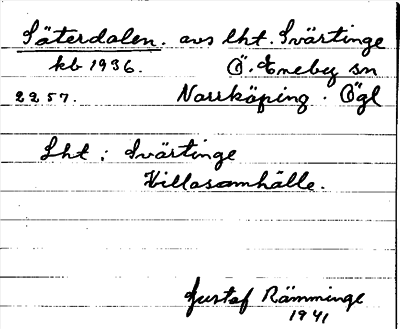 Säterdalen. avs lht. Svärtinge
kb 1936. Ö. Eneby sn
2257. Norrköping. Ögl
Lht: Svärtinge
Villasamhälle.
Gustaf Rämminge
1941